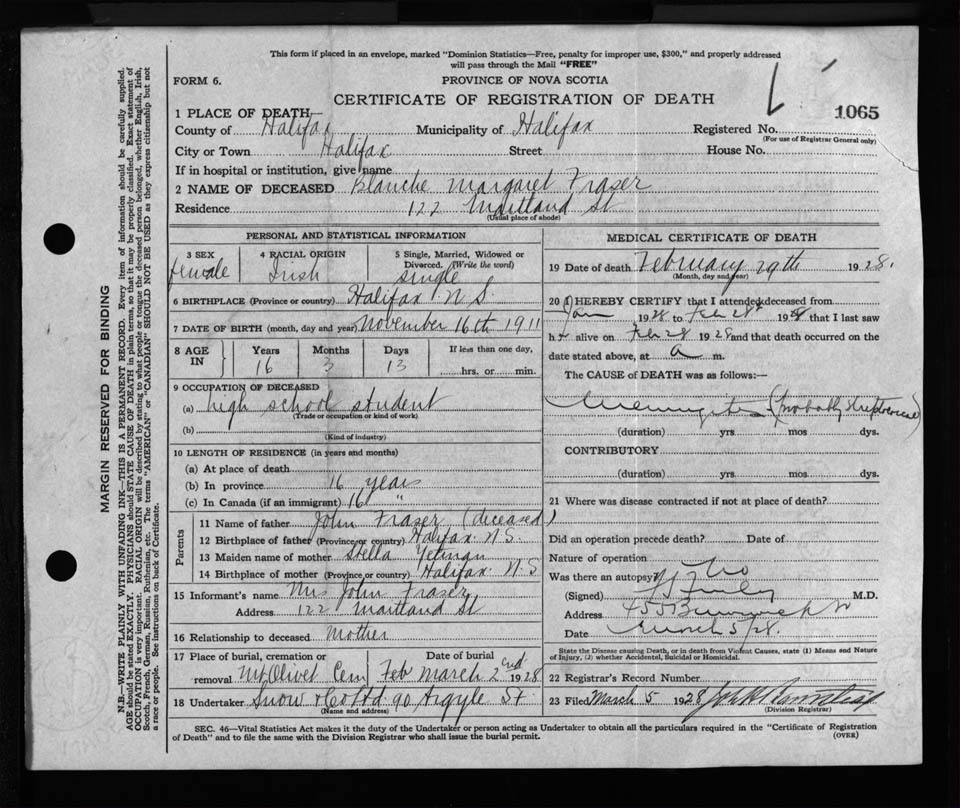 This form if placed in an envelope, marked "Dominion Statistics—Free, penalty for improper use, $300," and properly addressed
will pass through the Mail "FREE"
FORM 6.
PROVINCE OF NOVA SCOTIA
CERTIFICATE OF REGISTRATION OF DEATH
1065
1 PLACE OF DEATH
County of Halifax Municipality of Halifax Registered No.
(For use of Registrar General only)
City or Town Halifax Street House No.
If in hospital or institution, give name
2 NAME OF DECEASED Blanche Margaret Fraser
Residence 122 Maitland St
(Usual place of abode)
PERSONAL AND STATISTICAL INFORMATION
3 SEX 4 RACIAL ORIGIN 5 Single, Married, Widowed or
Divorced. (Write the word)
female Irish single
6 BIRTHPLACE (Province or country) Halifax N S.
7 DATE OF BIRTH (month, day and year) November 16th 1911
8 AGE IN Years Months Days If less than one day,
16 3 13 hrs. or min.
9 OCCUPATION OF DECEASED
(a) high school student
(Trade or occupation or kind of work)
(b)
(Kind of industry)
10 LENGTH OF RESIDENCE (in years and months)
(a) At place of death
(b) In province 16 years
(c) In Canada (if an immigrant) 16 "
Parents
11 Name of father John Fraser (deceased)
12 Birthplace of father (Province or country) Halifax N.S.
13 Maiden name of mother Stella Yetman
14 Birthplace of mother (Province or country) Halifax N.S
15 Informant's name Mrs John Fraser
Address 122 Maitland St
16 Relationship to deceased Mother
17 Place of burial, cremation or Date of burial
removal Mt Olivet Cem Feb March 2nd 1928
18 Undertaker Snow & Co Ltd 90 Argyle St
(Name and address)
MEDICAL CERTIFICATE OF DEATH
19 Date of death February 29th 1928.
(Month, day and year)
20 I HEREBY CERTIFY that I attended deceased from
Jan 1928 to Feb 28th 1928 that I last saw
h alive on Feb 28 1928 and that death occurred on the
date stated above, at a m.
The CAUSE of DEATH was as follows:—
Meningitis (probably
(duration) yrs mos dys.
CONTRIBUTORY
(duration) yrs mos dys.
21 Where was disease contracted if not at place of death?
Did an operation precede death? Date of
Nature of operation
Was there an autopsy? No
(Signed) M.D.
Address 455 Brunswick St
Date March 5/28.
State the Disease causing Death, or in death from Violent Causes, state (1) Means and Nature
of Injury, (2) whether Accidental, Suicidal or Homicidal.
22 Registrar's Record Number
23 Filed March 5 1928
(Division Registrar)
SEC. 46—Vital Statistics Act makes it the duty of the Undertaker or person acting as Undertaker to obtain all the particulars required in the "Certificate of Registration
of Death" and to file the same with the Division Registrar who shall issue the burial permit.
(OVER)
MARGIN RESERVED FOR BINDING
N.B.—WRITE PLAINLY WITH UNFADING INK—THIS IS A PERMANENT RECORD. Every item of information should be carefully supplied.
AGE should be stated EXACTLY. PHYSICIANS should STATE CAUSE OF DEATH in plain terms, so that it may be properly classified. Exact statement of
OCCUPATION is very important. RACIAL ORIGIN will be described by stating to what people or tongue the deceased person belonged, whether English, Irish,
Scotch, French, German, Russian, Ruthenian, etc. The terms "AMERICAN" or "CANADIAN" SHOULD NOT BE USED as they express citizenship but not
a race or people. See instructions on back of Certificate.